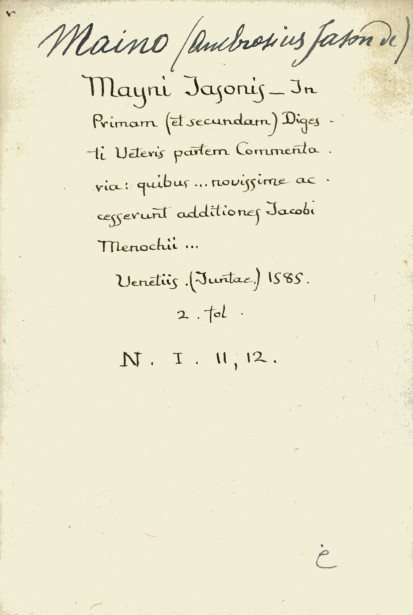 Maino (Ambrosius Jason de)
Mayni Jasonis_ In
Primam (et secundam) Diges-
ti Veteris partem Commenta.
ria: quibus ... novissime ac.
cesserunt additiones Jacobi
Menochii ...
Venetiis. (Juntae.) 1585.
2. fol.
N. I. 11, 12.